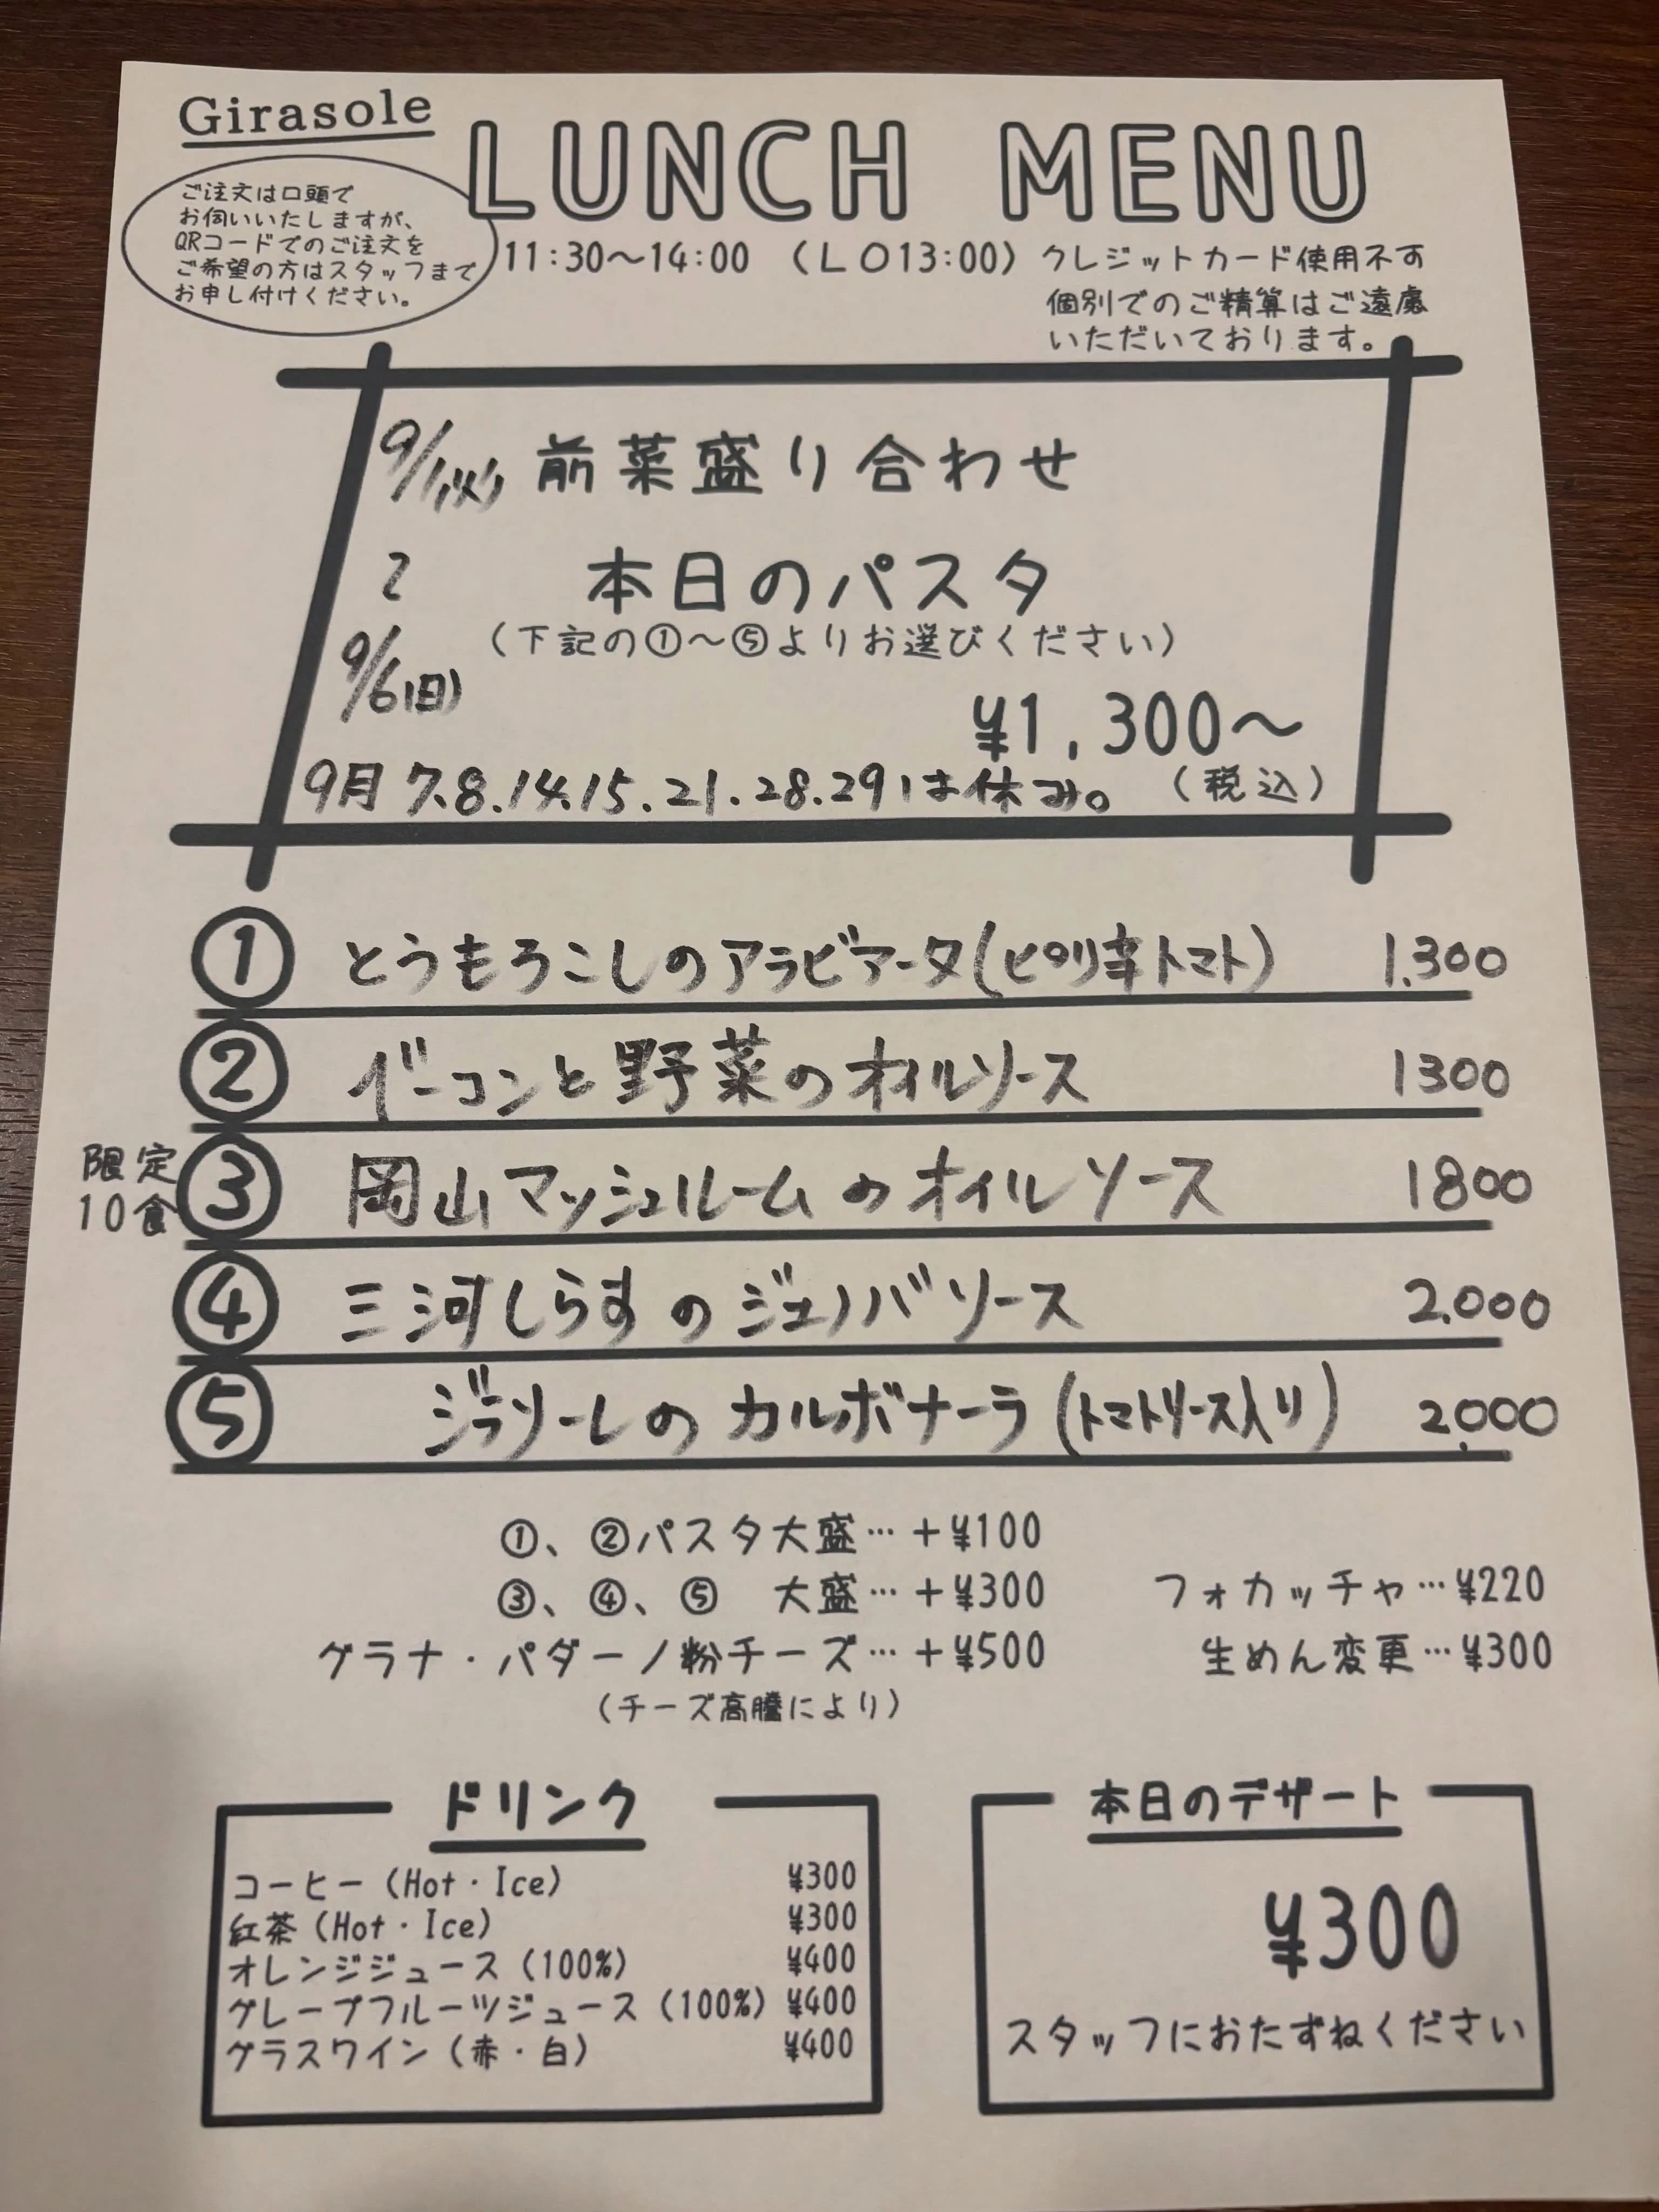 Girasole
LUNCH MENU
ご注文は口頭で
お伺いいたしますが、
QRコードでのご注文を
ご希望の方はスタッフまで
お申し付けください。
11:30～14:00 （LO13:00）クレジットカード使用不可
個別でのご精算はご遠慮
いただいております。
9/1(火) 前菜盛り合わせ
〜 本日のパスタ
（下記の①～⑤よりお選びください）
9/6(日)
¥1,300～
9月 7.8.14.15.21.28.29は休み。（税込）
① とうもろこしのアラビアータ(ピリ辛トマト) 1.300
② ベーコンと野菜のオイルソース 1300
限定
10食
③ 岡山マッシュルームのオイルソース 1800
④ 三河しらすのジェノバソース 2.000
⑤ ジラソーレのカルボナーラ(トマトソース入り) 2.000
①、②パスタ大盛…＋¥100
③、④、⑤ 大盛…＋¥300 フォカッチャ…¥220
グラナ・パダーノ粉チーズ…＋¥500 生めん変更…¥300
（チーズ高騰により）
ドリンク
コーヒー（Hot・Ice） ¥300
紅茶（Hot・Ice） ¥300
オレンジジュース（100%） ¥400
グレープフルーツジュース（100%） ¥400
グラスワイン（赤・白） ¥400
本日のデザート
¥300
スタッフにおたずねください